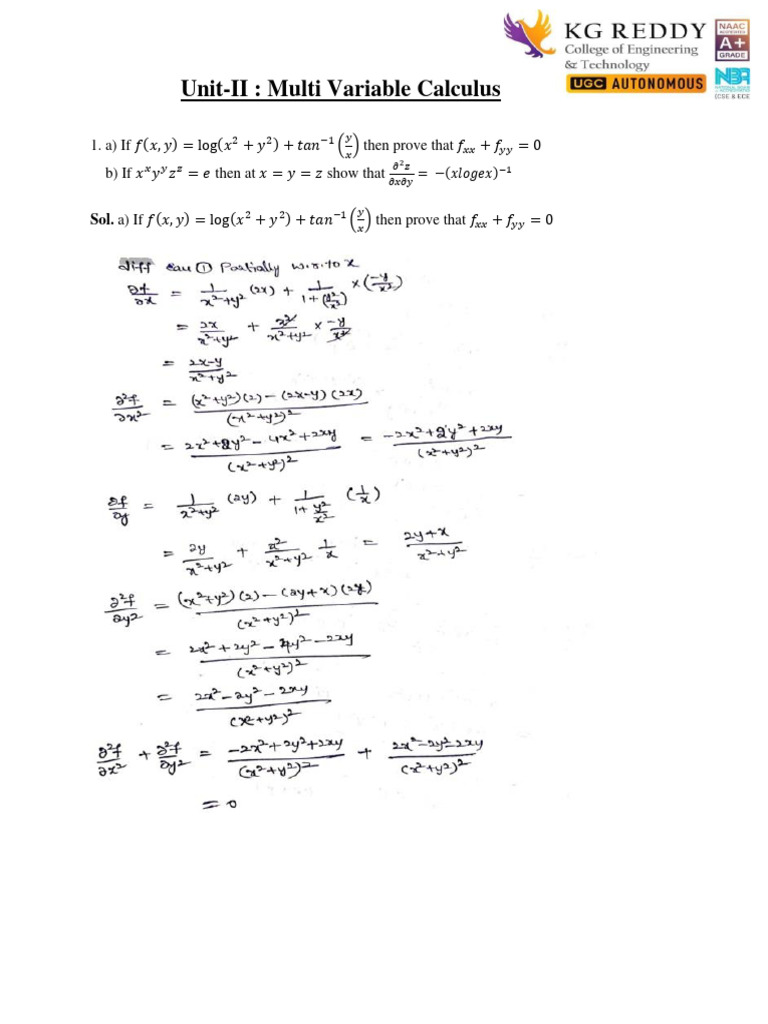 KG REDDY
College of Engineering
& Technology
UGC AUTONOMOUS
NAAC
ACCREDITED
A+
GRADE
NBA
(CSE & ECE)
Unit-II : Multi Variable Calculus
1. a) If f(x, y) = log(x² + y²) + tan⁻¹(y/x) then prove that fₓₓ + f_yy = 0
b) If xˣyʸzᶻ = e then at x = y = z show that ∂²z/∂x∂y = −(xlogex)⁻¹
Sol. a) If f(x, y) = log(x² + y²) + tan⁻¹(y/x) then prove that fₓₓ + f_yy = 0
diff eau ① Partially w.r.to x
∂f/∂x = 1/(x²+y²) (2x) + 1/(1+(y²/x²)) × (-y/x²)
= 2x/(x²+y²) + x²/(x²+y²) × -y/x²
= (2x-y)/(x²+y²)
∂²f/∂x² = ((x²+y²)(2) - (2x-y)(2x))/(x²+y²)²
= (2x²+2y²-4x²+2xy)/(x²+y²)² = (-2x²+2y²+2xy)/(x²+y²)²
∂f/∂y = 1/(x²+y²) (2y) + 1/(1+y²/x²) (1/x)
= 2y/(x²+y²) + x²/(x²+y²) 1/x = (2y+x)/(x²+y²)
∂²f/∂y² = ((x²+y²)(2) - (2y+x)(2y))/(x²+y²)²
= (2x²+2y²-4y²-2xy)/(x²+y²)²
= (2x²-2y²-2xy)/(x²+y²)²
∂²f/∂x² + ∂²f/∂y² = (-2x²+2y²+2xy)/(x²+y²)² + (2x²-2y²-2xy)/(x²+y²)²
= 0